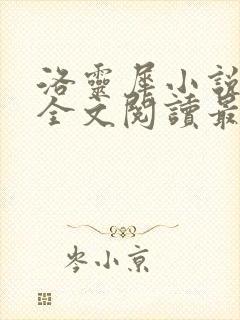 洛靈犀小說
全文閱讀最
岑小京